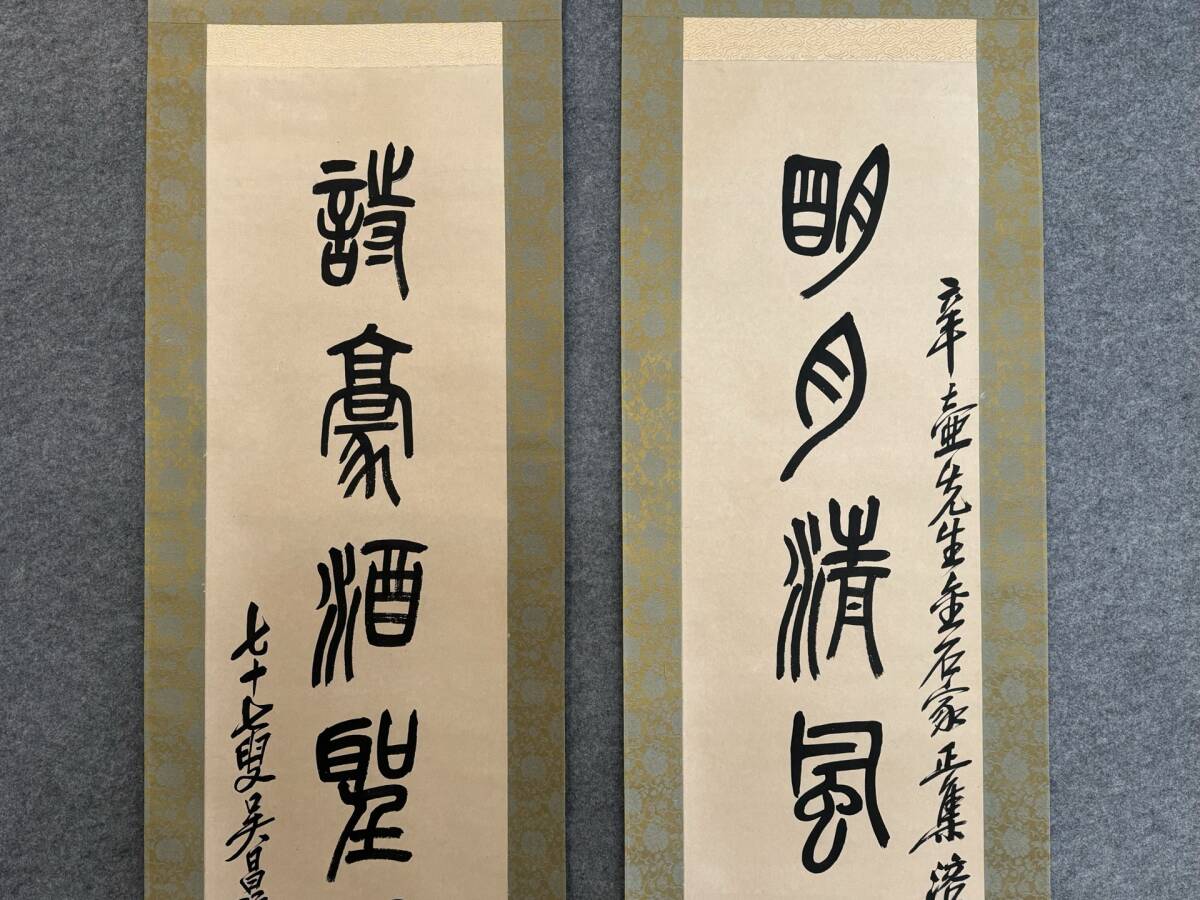 辛壺先生金石家正集
明月清風
詩豪酒聖
七十七叟吳昌